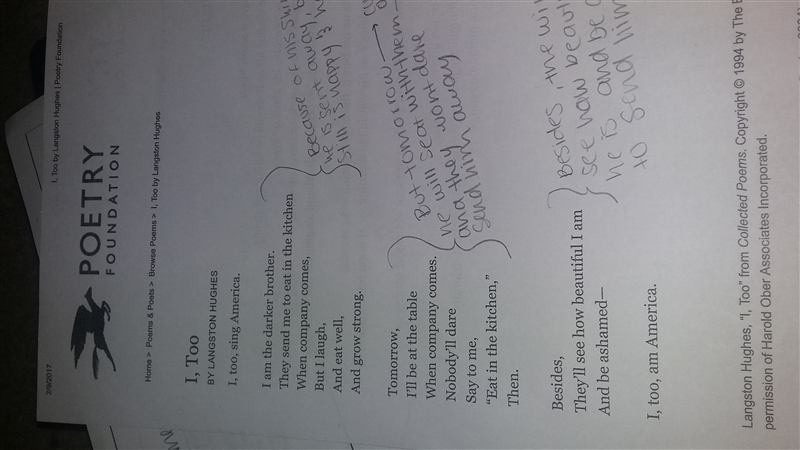 2/9/2017
I, Too by Langston Hughes | Poetry Foundation
POETRY
FOUNDATION
Home > Poems & Poets > Browse Poems > I, Too by Langston Hughes
I, Too
BY LANGSTON HUGHES
I, too, sing America.
I am the darker brother.
They send me to eat in the kitchen
When company comes,
But I laugh,
And eat well,
And grow strong.
Because of his skin
he is sent away
still is happy &
Tomorrow,
I'll be at the table
When company comes.
Nobody'll dare
Say to me,
“Eat in the kitchen,”
Then.
But tomorrow
he will seat with them
and they wont dare
send him away
Besides,
They'll see how beautiful I am
And be ashamed—
Besides, the
see how
he is and be
to send him
I, too, am America.
Langston Hughes, "I, Too" from Collected Poems. Copyright © 1994 by The
permission of Harold Ober Associates Incorporated.